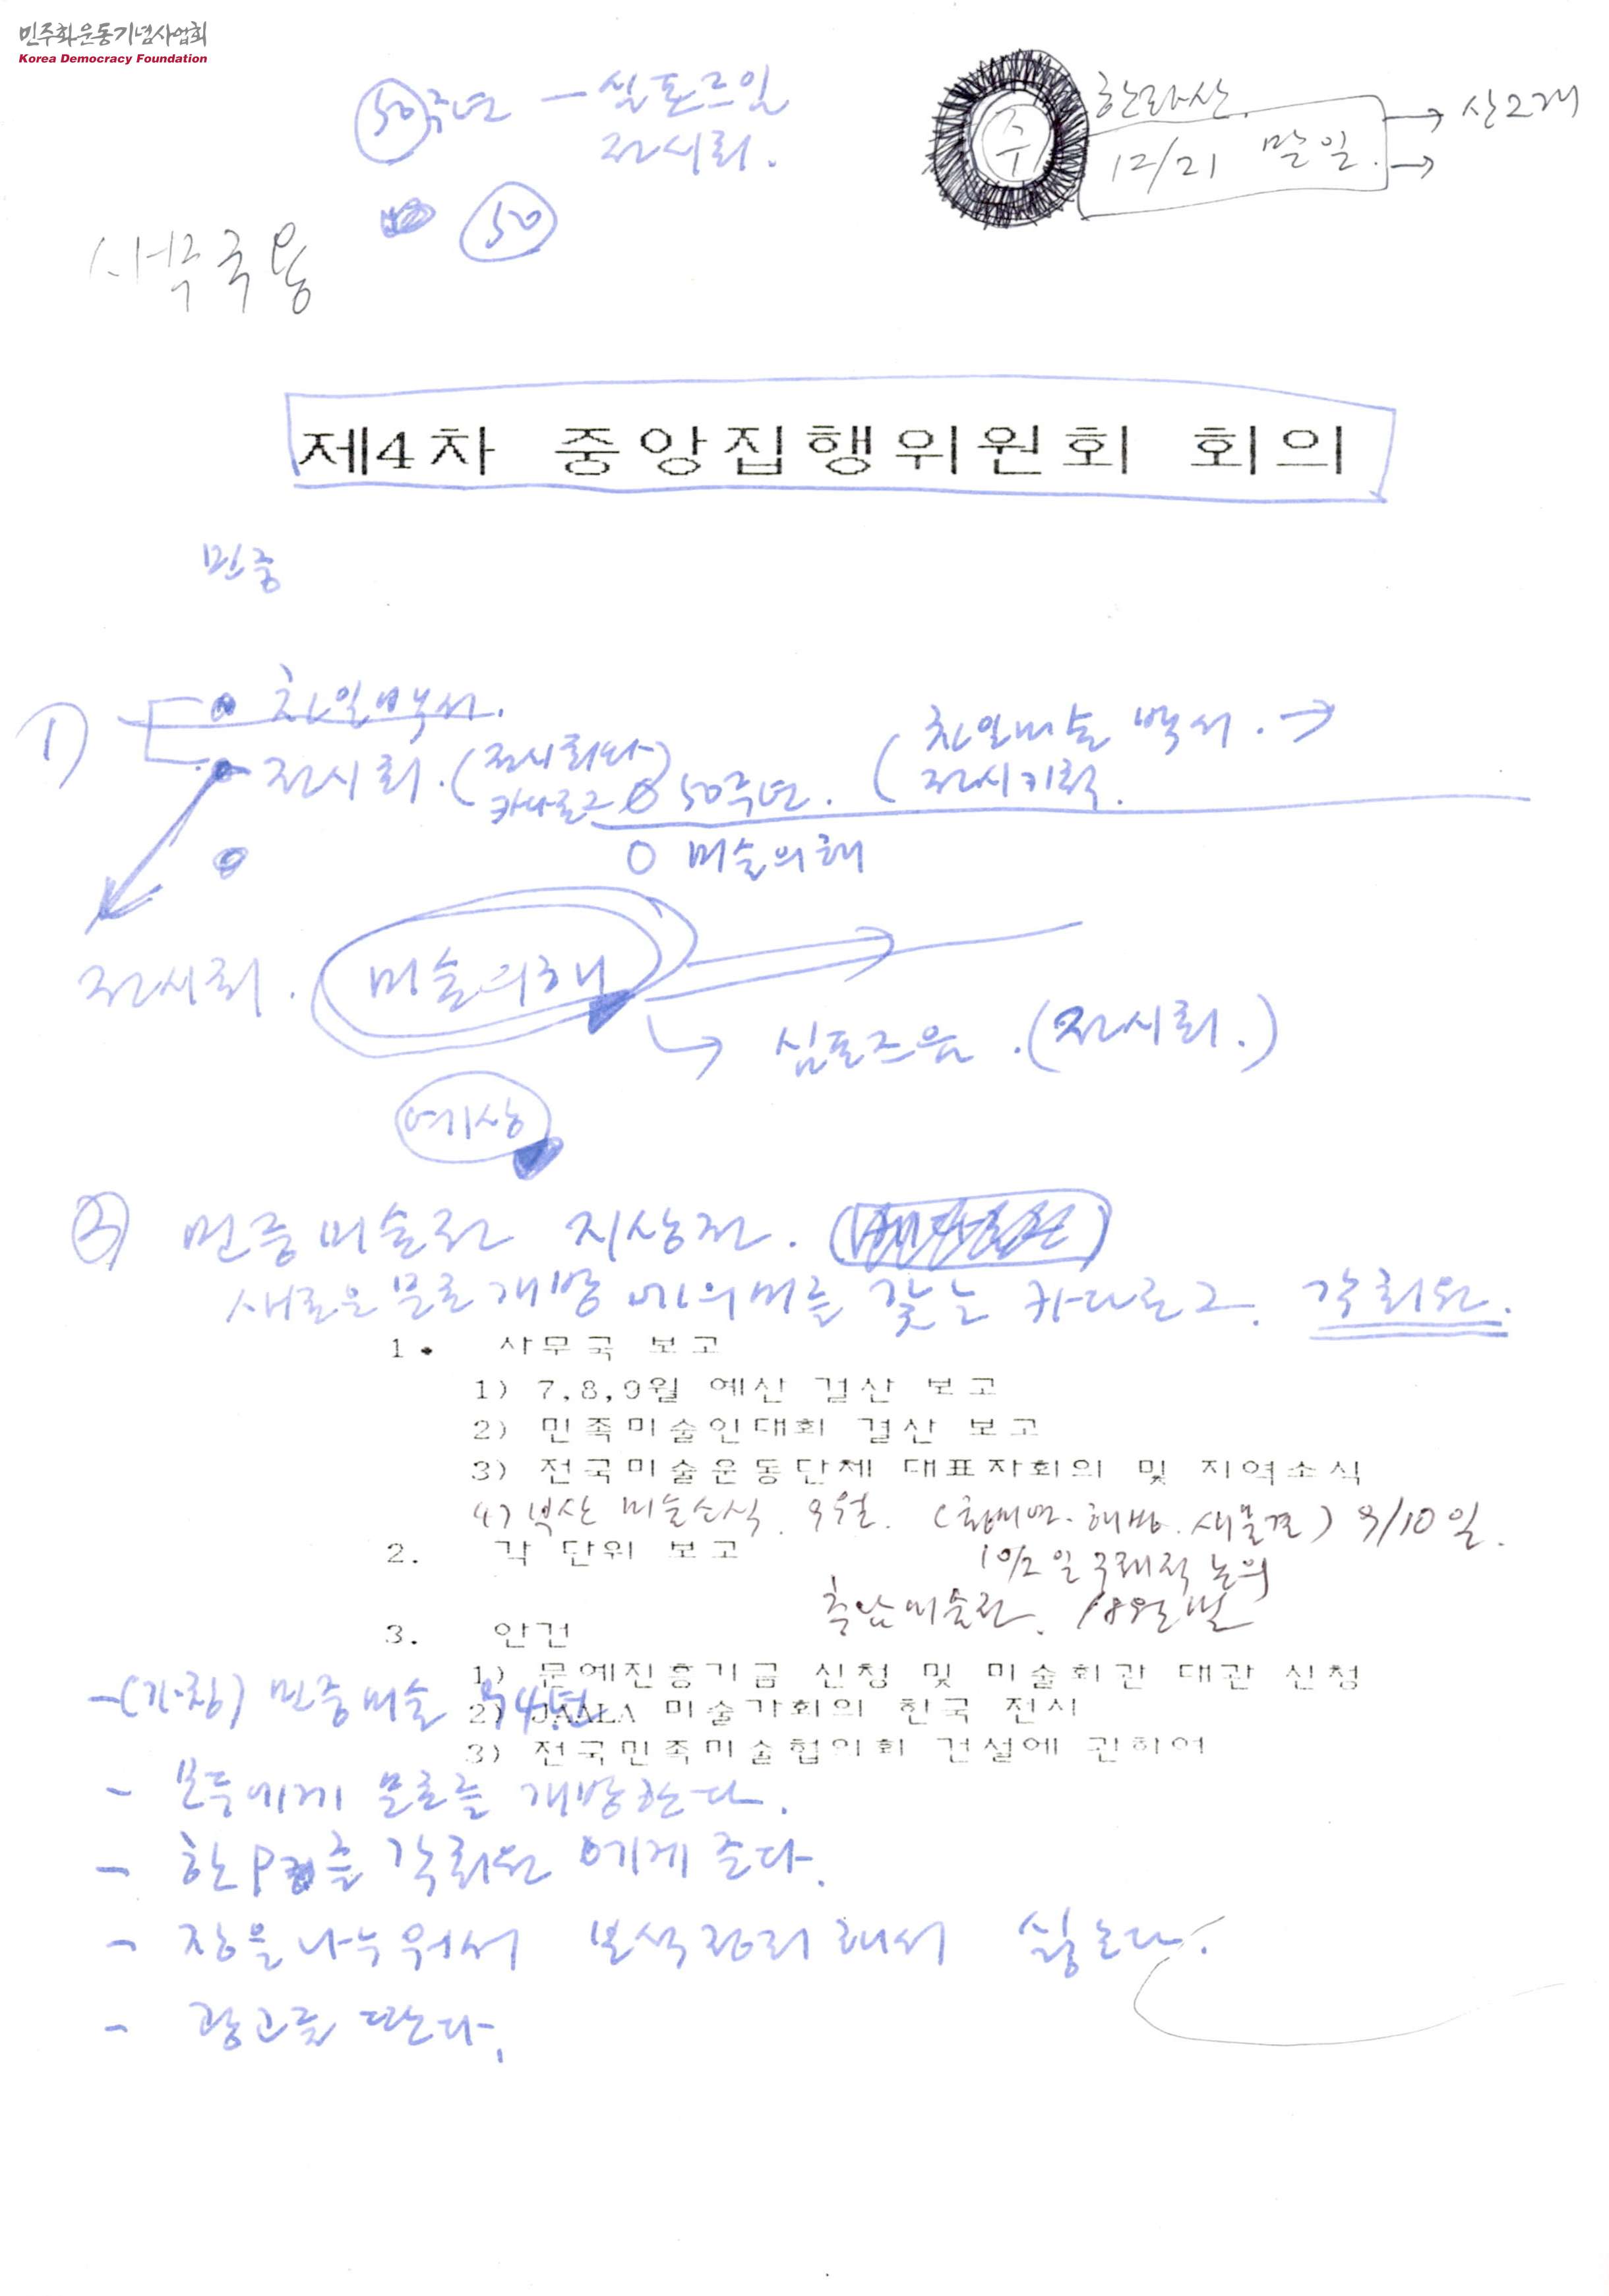 민주화운동기념사업회
Korea Democracy Foundation
50주년 — 심포즈엄
전시회.
50
수
한라산
12/21 말일.
→ 산2개
→
사무국용
제4차 중앙집행위원회 회의
민중
1) 친일백서.
전시회. (전시회와
카다로그
50주년. (친일미술 백서. →
전시기획.
○ 미술의해
전시회. 미술의해
→ 심포즈움. (전시회.)
예기상
2) 민중미술전 지상전.
새로운 문호개방 에의미를 갖는 카다로그. 각회원.
1. 사무국 보고
1) 7,8,9월 예산 결산 보고
2) 민족미술인대회 결산 보고
3) 전국미술운동단체 대표자회의 및 지역소식
4) 부산 미술소식. 9월. 9/10일.
2. 각 단위 보고
10/2일 구체적 논의
충남미술전.
3. 안건
1) 문예진흥기금 신청 및 미술회관 대관 신청
2) JAALA 미술가회의 한국 전시
3) 전국민족미술협의회 건설에 관하여
-(가칭) 민중미술 94년
- 모두에게 문호를 개방한다.
- 한P를 각회원 에게 준다.
- 장을나누워서 분석정리해서 싫는다.
- 광고를 딴다.